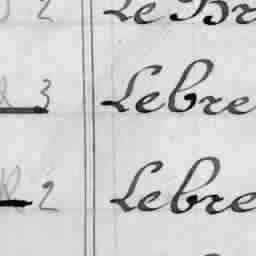 2 Le Br
3 Lebre
2 Lebre